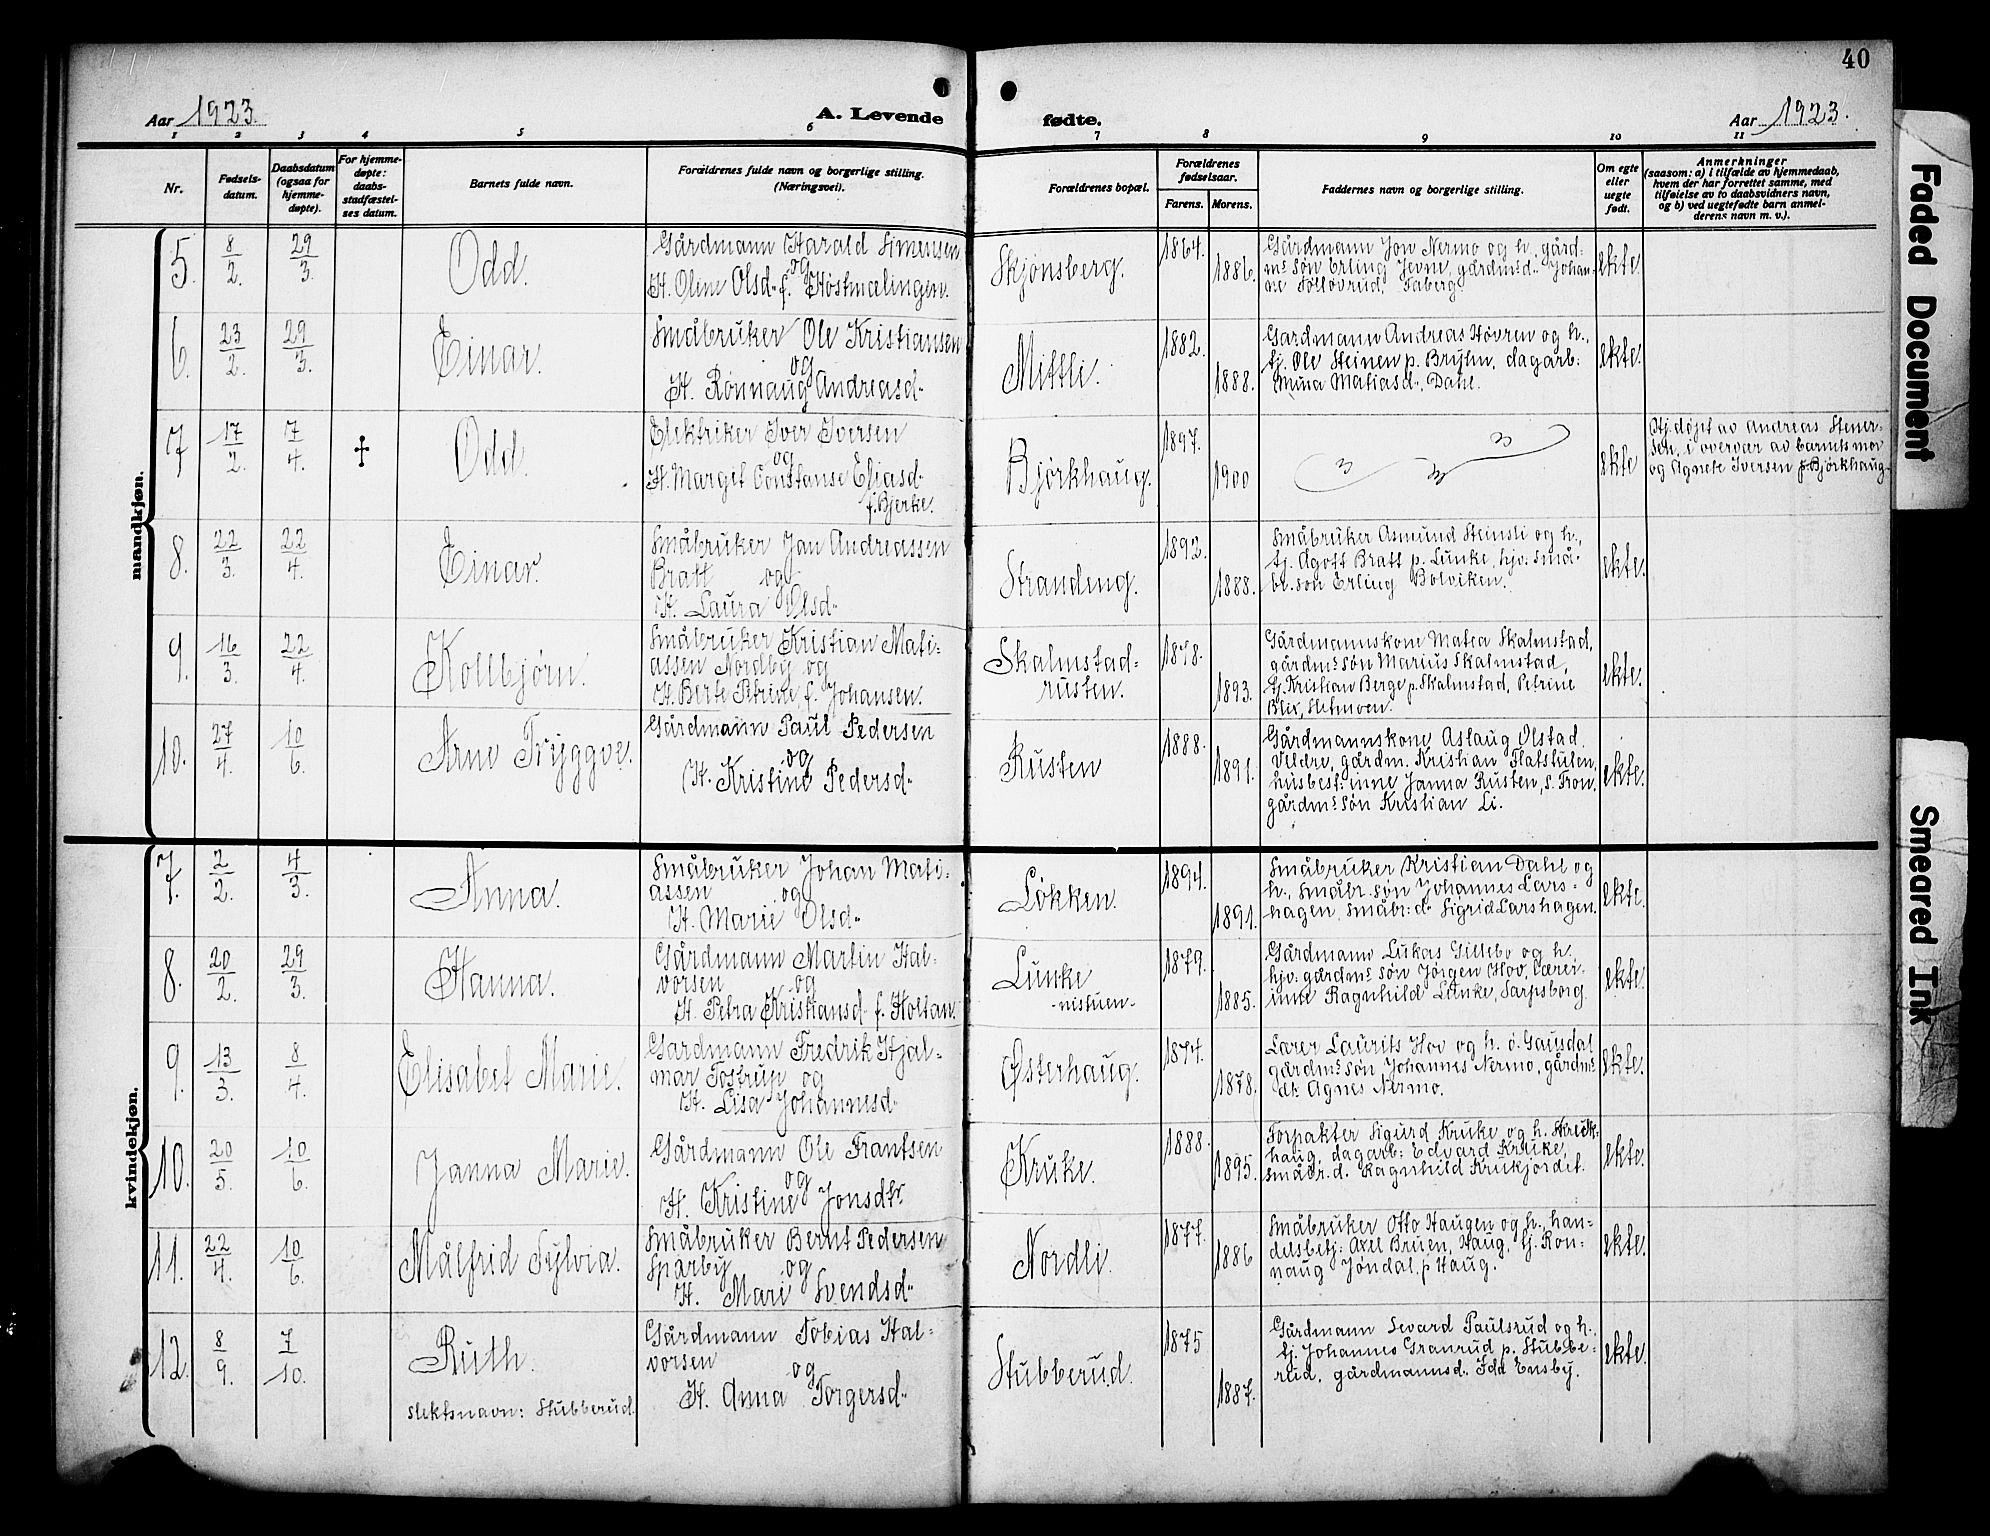 40
Aar 1923.
A. Levende fødte.
Aar 1923.
1 2 3 4 5 6 7 8 9 10 11
Nr.
Fødsels-
datum.
Daabsdatum
(ogsaa for
hjemme-
døpte).
For hjemme-
døpte:
daabs-
stadfæstel-
ses datum.
Barnets fulde navn.
Forældrenes fulde navn og borgerlige stilling.
(Næringsvei).
Forældrenes bopæl.
Forældrenes
fødselsaar.
Farens. Morens.
Faddernes navn og borgerlige stilling.
Om egte
eller
uegte
født.
Anmerkninger
(saasom: a) i tilfælde av hjemmedaab,
hvem der har forrettet samme, med
tilføielse av to daabsvidners navn,
og b) ved uegtefødte barn anmel-
derens navn m. v.).
mandkjøn.
5. 8/2. 29/3. Odd.
Gårdmann Harald Simensen
og
H. Oline Olsd. f. Høstmælingen.
Skjønsberg. 1864. 1886.
Gårdmann Jon Nermo og h., gård-
ms søn Erling Jevne, gårdmd. Johan-
ne Folløvrud, Faberg.
ekte.
6. 23/2. 29/3. Einar.
Småbruker Ole Kristiansen
og
H. Rønnaug Andreasd.
Mittli. 1882. 1888.
Gardmann Andreas Høvren og h.,
tj. Ole Steinen p. Bryhn, dagarb:
Mina Matiasd., Dahl.
ekte.
7 17/2. 7/4. Odd.
Elektriker Iver Iversen
og
H. Margit Constanse Eliasd.
f. Bjerke.
Bjørkhaug. 1897. 1900
ekte
Hj.døpt av Andreas Stener-
sen, i overvær av barnets mor
og Agnete Iversen f. Bjørkhaug
8. 22/3. 22/4. Einar.
Småbruker Jan Andreassen
Bratt og
H. Laura Olsd.
Stranding. 1892. 1888.
Småbruker Asmund Steinsli og h.,
tj. Agott Bratt p. Lunke, hjv. små-
br.søn Erling Bolviken.
ekte.
9. 16/3. 22/4. Kolbjørn.
Småbruker Kristian Mati-
assen Nordby og
H. Berte Petrine, f. Johansen.
Skalmstad-
rusten. 1878. 1893.
Gårdmannskone Matea Skalmstad,
gårdms søn Marius Skalmstad,
tj. Kristian Berge p. Skalmstad, Petrine
Blix,
ekte.
10. 27/4. 10/6. Arne Tryggve.
Gårdmann Paul Pedersen
og
H. Kristine Pedersd.
Rusten 1888. 1891.
Gårdmannskone Aslaug Olstad,
Veldre, gårdm. Kristian Flatshulen,
husbest.inne Janna Rusten, s. Fron,
gårdms søn Kristian Li.
ekte.
kvindekjøn.
7. 2/2. 4/3. Anna.
Småbruker Johan Mati-
assen og
H. Marie Olsd.
Løkken. 1894. 1891.
Småbruker Kristian Dahl og
h., småbr.søn Johannes Lars-
hagen, småbr:d. Sigrid Larshagen.
ekte.
8. 20/2. 29/3. Hanna.
Gårdmann Martin Hal-
vorsen og
H. Petra Kristiansd. f. Holtan.
Lunke
-nistuen- 1879. 1885.
Gårdmann Lukas Gillebo og h.,
hjv. gårdms søn Jørgen Hov, Lærer-
inne Ragnhild Lunke, Sarpsborg.
ekte.
9. 13/3. 8/4. Elisabet Marie.
Gardmann Fredrik Hjal-
mar Tostrup og
H. Lisa Johannesd.
Østerhaug. 1874. 1878.
Lærer Laurits Hov og h. ø. Gausdal
gårdms søn Johannes Nermo, gårdms
dt. Agnes Nermo.
ekte.
10. 20/5. 10/6. Janna Marie.
Gårdmann Ole Frantsen
og
H. Kristine Jonsdtr.
Kruke. 1888. 1895.
Forpakter Sigurd Kruke og h.
haug, dagarb: Edvard Kruke,
småbr.d. Ragnhild Krukjordet.
ekte.
11. 22/4. 10/6. Målfrid Sylvia.
Småbruker Bernt Pedersen
Sparby og
H. Mari Svendsd.
Nordli. 1877. 1886
Småbruker Otto Haugen og h., han-
delsbetj: Axel Bruen, Haug, tj. Ron-
naug Jøndal, p Haug.
ekte.
12. 8/9. 7/10. Ruth.
slektsnavn: Stubberud.
Gårdmann Tobias Hal-
vorsen og
H. Anna Torgersd.
Stubberud. 1875 1887.
Gårdmann Sevard Paulsrud og h.,
tj. Johannes Granrud p. Stubbe-
rud, gårdmannsd. Idd Ensby.
ekte.
Faded Document
Smeared Ink